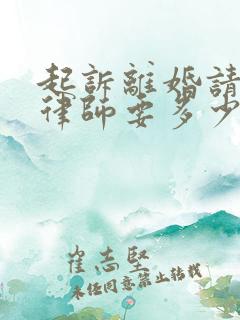 起訴離婚請
律師要多少
崔志堅
未經同意禁止轉載